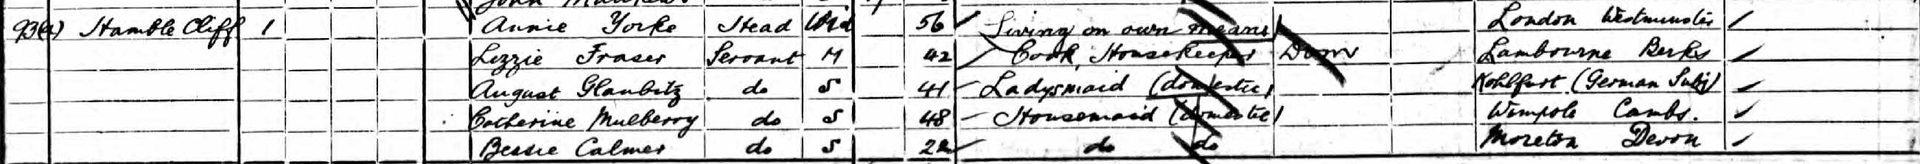 93(a) Hamble Cliff 1 Annie Yorke Head Wid 56 Living on own means London Westminster
Lizzie Fraser Servant M 42 Cook, Housekeeper Dom Lambourne Berks
August Glaubitz do S 41 Ladysmaid (domestic) Kohlfurt (German Subj)
Catherine Mulberry do S 48 Housemaid (domestic) Wimpole Cambs.
Bessie Calmer do S 22 do do Moreton Devon